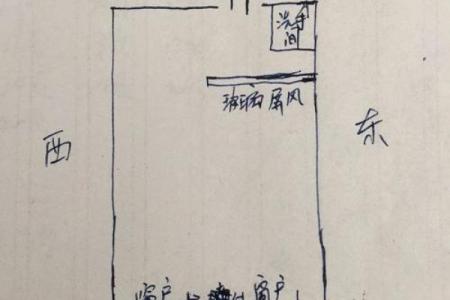 洗手
间
玻璃屏风
西
东
窗户 窗户